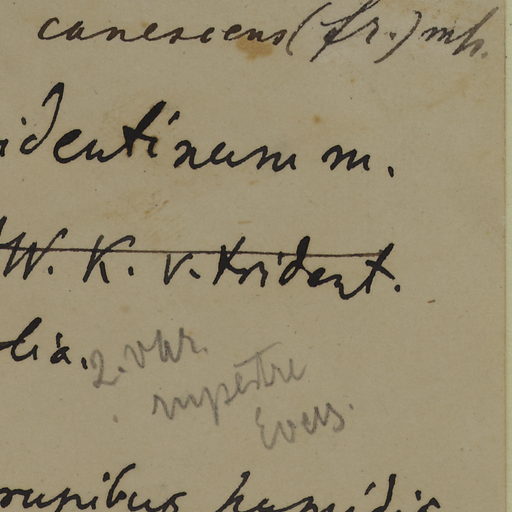 canescens (fr.) mh.
identinum m.
W. K. v. trident.
lia.
2. var.
rupestre
Evers.
rupibus humidis